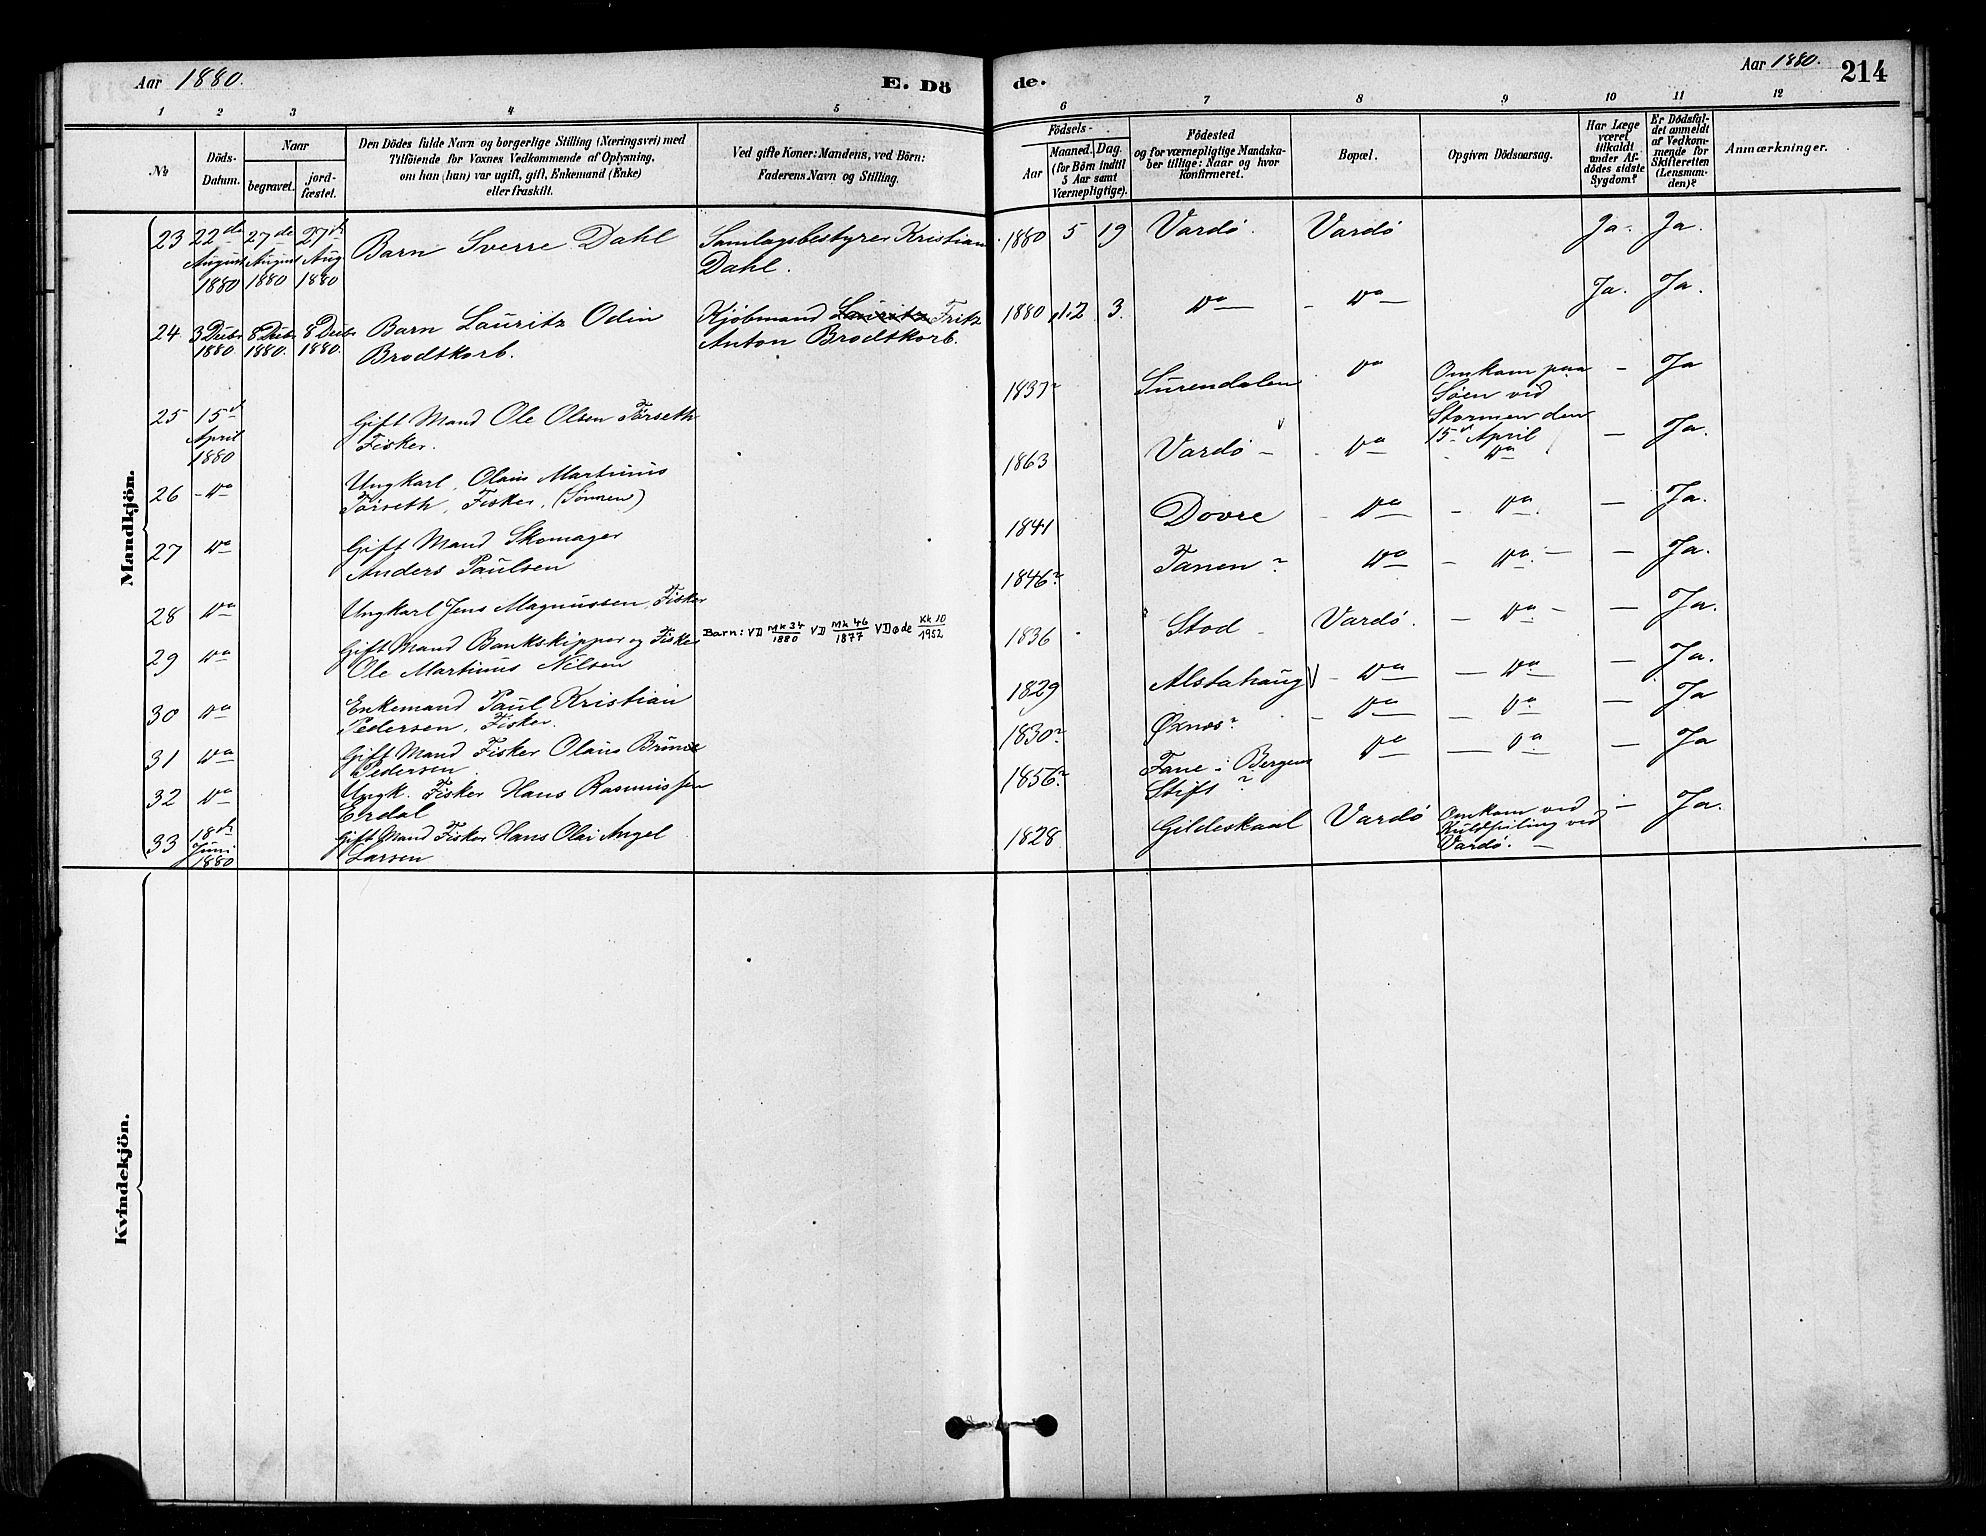 Aar 1880.
E. Dö
de.
Aar 1880.
214
1 2 3 4 5 6 7 8 9 10 11 12
No
Döds-Datum.
Naar
begravet.
jord-fæstet.
Den Dödes fulde Navn og borgerlige Stilling (Næringsvei) med
Tilföiende for Voxnes Vedkommende af Oplysning,
om han (hun) var ugift, gift, Enkemand (Enke)
eller fraskilt.
Ved gifte Koner: Mandens, ved Börn:
Faderens Navn og Stilling.
Födsels-
Aar
Maaned. Dag.
(for Börn indtil
5 Aar samt
Værnepligtige).
Födested
og for værnepligtige Mandska-
ber tillige: Naar og hvor
Konfirmeret.
Bopæl.
Opgiven Dödsaarsag.
Har Læge
været
tilkaldt
under Af-
dödes sidste
Sygdom?
Er Dödsfal-
det anmeldt
af Vedkom-
mende for
Skifteretten
(Lensman-
den)?
Anmærkninger.
Mandkjön.
23 22de August 1880 27de August 1880 27de Aug 1880 Barn Sverre Dahl Samlagsbestyrer Kristian Dahl. 1880 5 19 Vardö. Vardö Ja. Ja.
24 3 Decbr 1880. 8 Decbr 1880. 8 Decbr 1880. Barn Lauritz Odin Brodtkorb. Kjöbmand Lauritz Fritz Anton Brodtkorb. 1880 12 3. Do Do Ja. Ja.
25 15de April 1880 Gift Mand Ole Olsen Törseth Fisker. 1837? Surendalen Do Omkom paa Söen ved Stormen den 15de April - Ja
26 - Do Ungkarl, Olaus Martinus Törseth, Fisker, (Sönnen) 1863 Vardö - - Do - Do - Ja.
27 Do Gift Mand Skomager Anders Paulsen 1841 Dovre - Do - Do. - Ja.
28 Do Ungkarl Jens Magnussen, Fisker 1846? Tanen? Do - Do. - - Ja.
29 Do Gift Mand Bankskipper og Fisker Ole Martinus Nilsen Barn: VD Mk 34/1880 VD Mk 46/1877 VDøde Kk 10/1952 1836 Stod - Vardö. - Do - - Ja.
30 Do Enkemand Paul Kristian Pedersen, Fisker. 1829 Alstahaug - Do - Do - Ja.
31 Do Gift Mand Fisker Olaus Pedersen. 1830? Öxnes? - Do - Do - Ja
32 Do Ungk. Fisker Hans Rasmussen Erdal 1856? Fane i Bergens Stift? Do - Do - Ja
33 18de Juni 1880 Gift Mand Fisker Hans Olai Angel Larsen 1828 Gildeskaal Vardö Omkom ved Kuldseiling ved Vardö. - - Ja.
Kvindekjön.